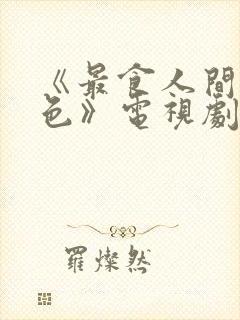 《最食人間
色》電視劇
羅燦然